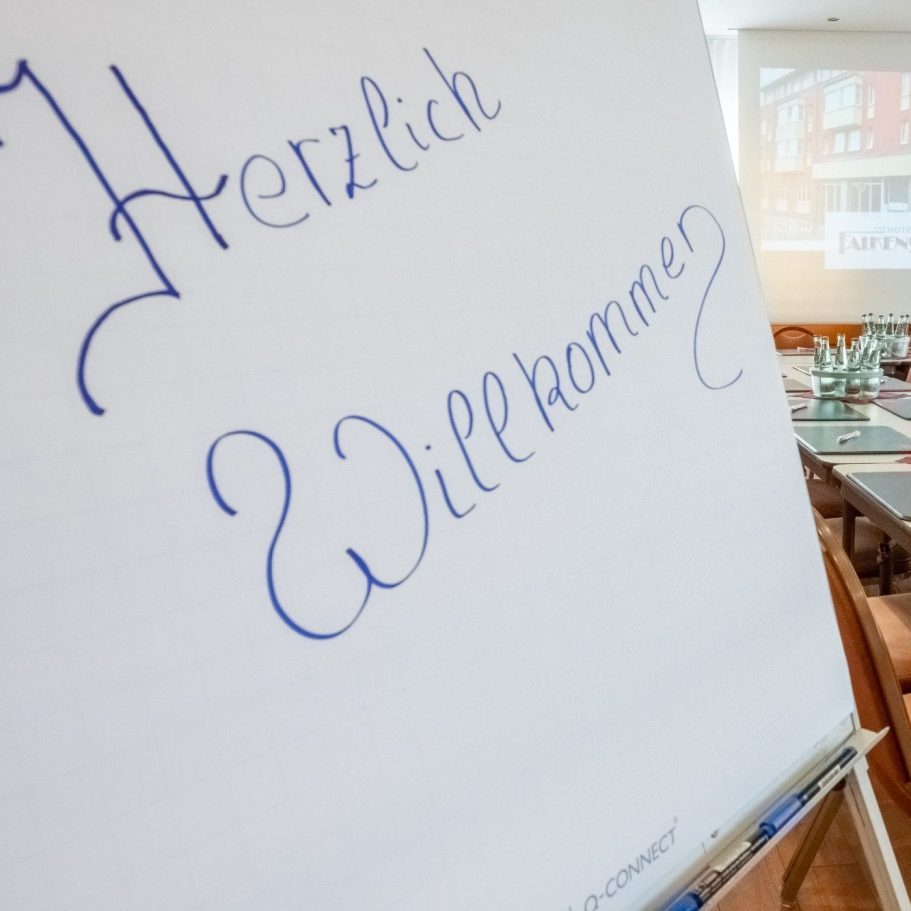 Herzlich
Willkommen
HOTEL
Q-CONNECT